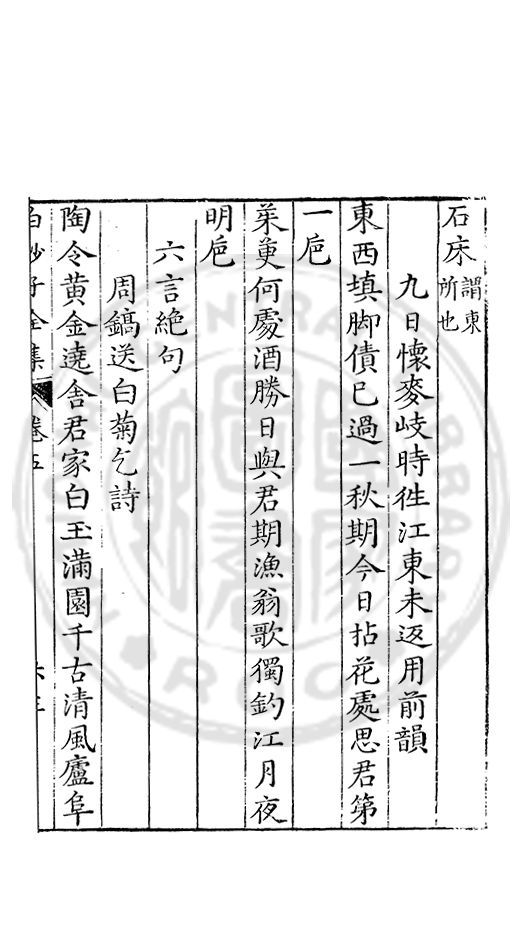 石床謂東所也
九日懷麥岐時徃江東未返用前韻
東西填脚債已過一秋期今日拈花處思君第
一巵
茱萸何處酒勝日與君期漁翁歌獨釣江月夜
明巵
六言絶句
周鎬送白菊乞詩
陶令黄金遶舍君家白玉滿園千古清風廬阜
白沙子全集 卷五